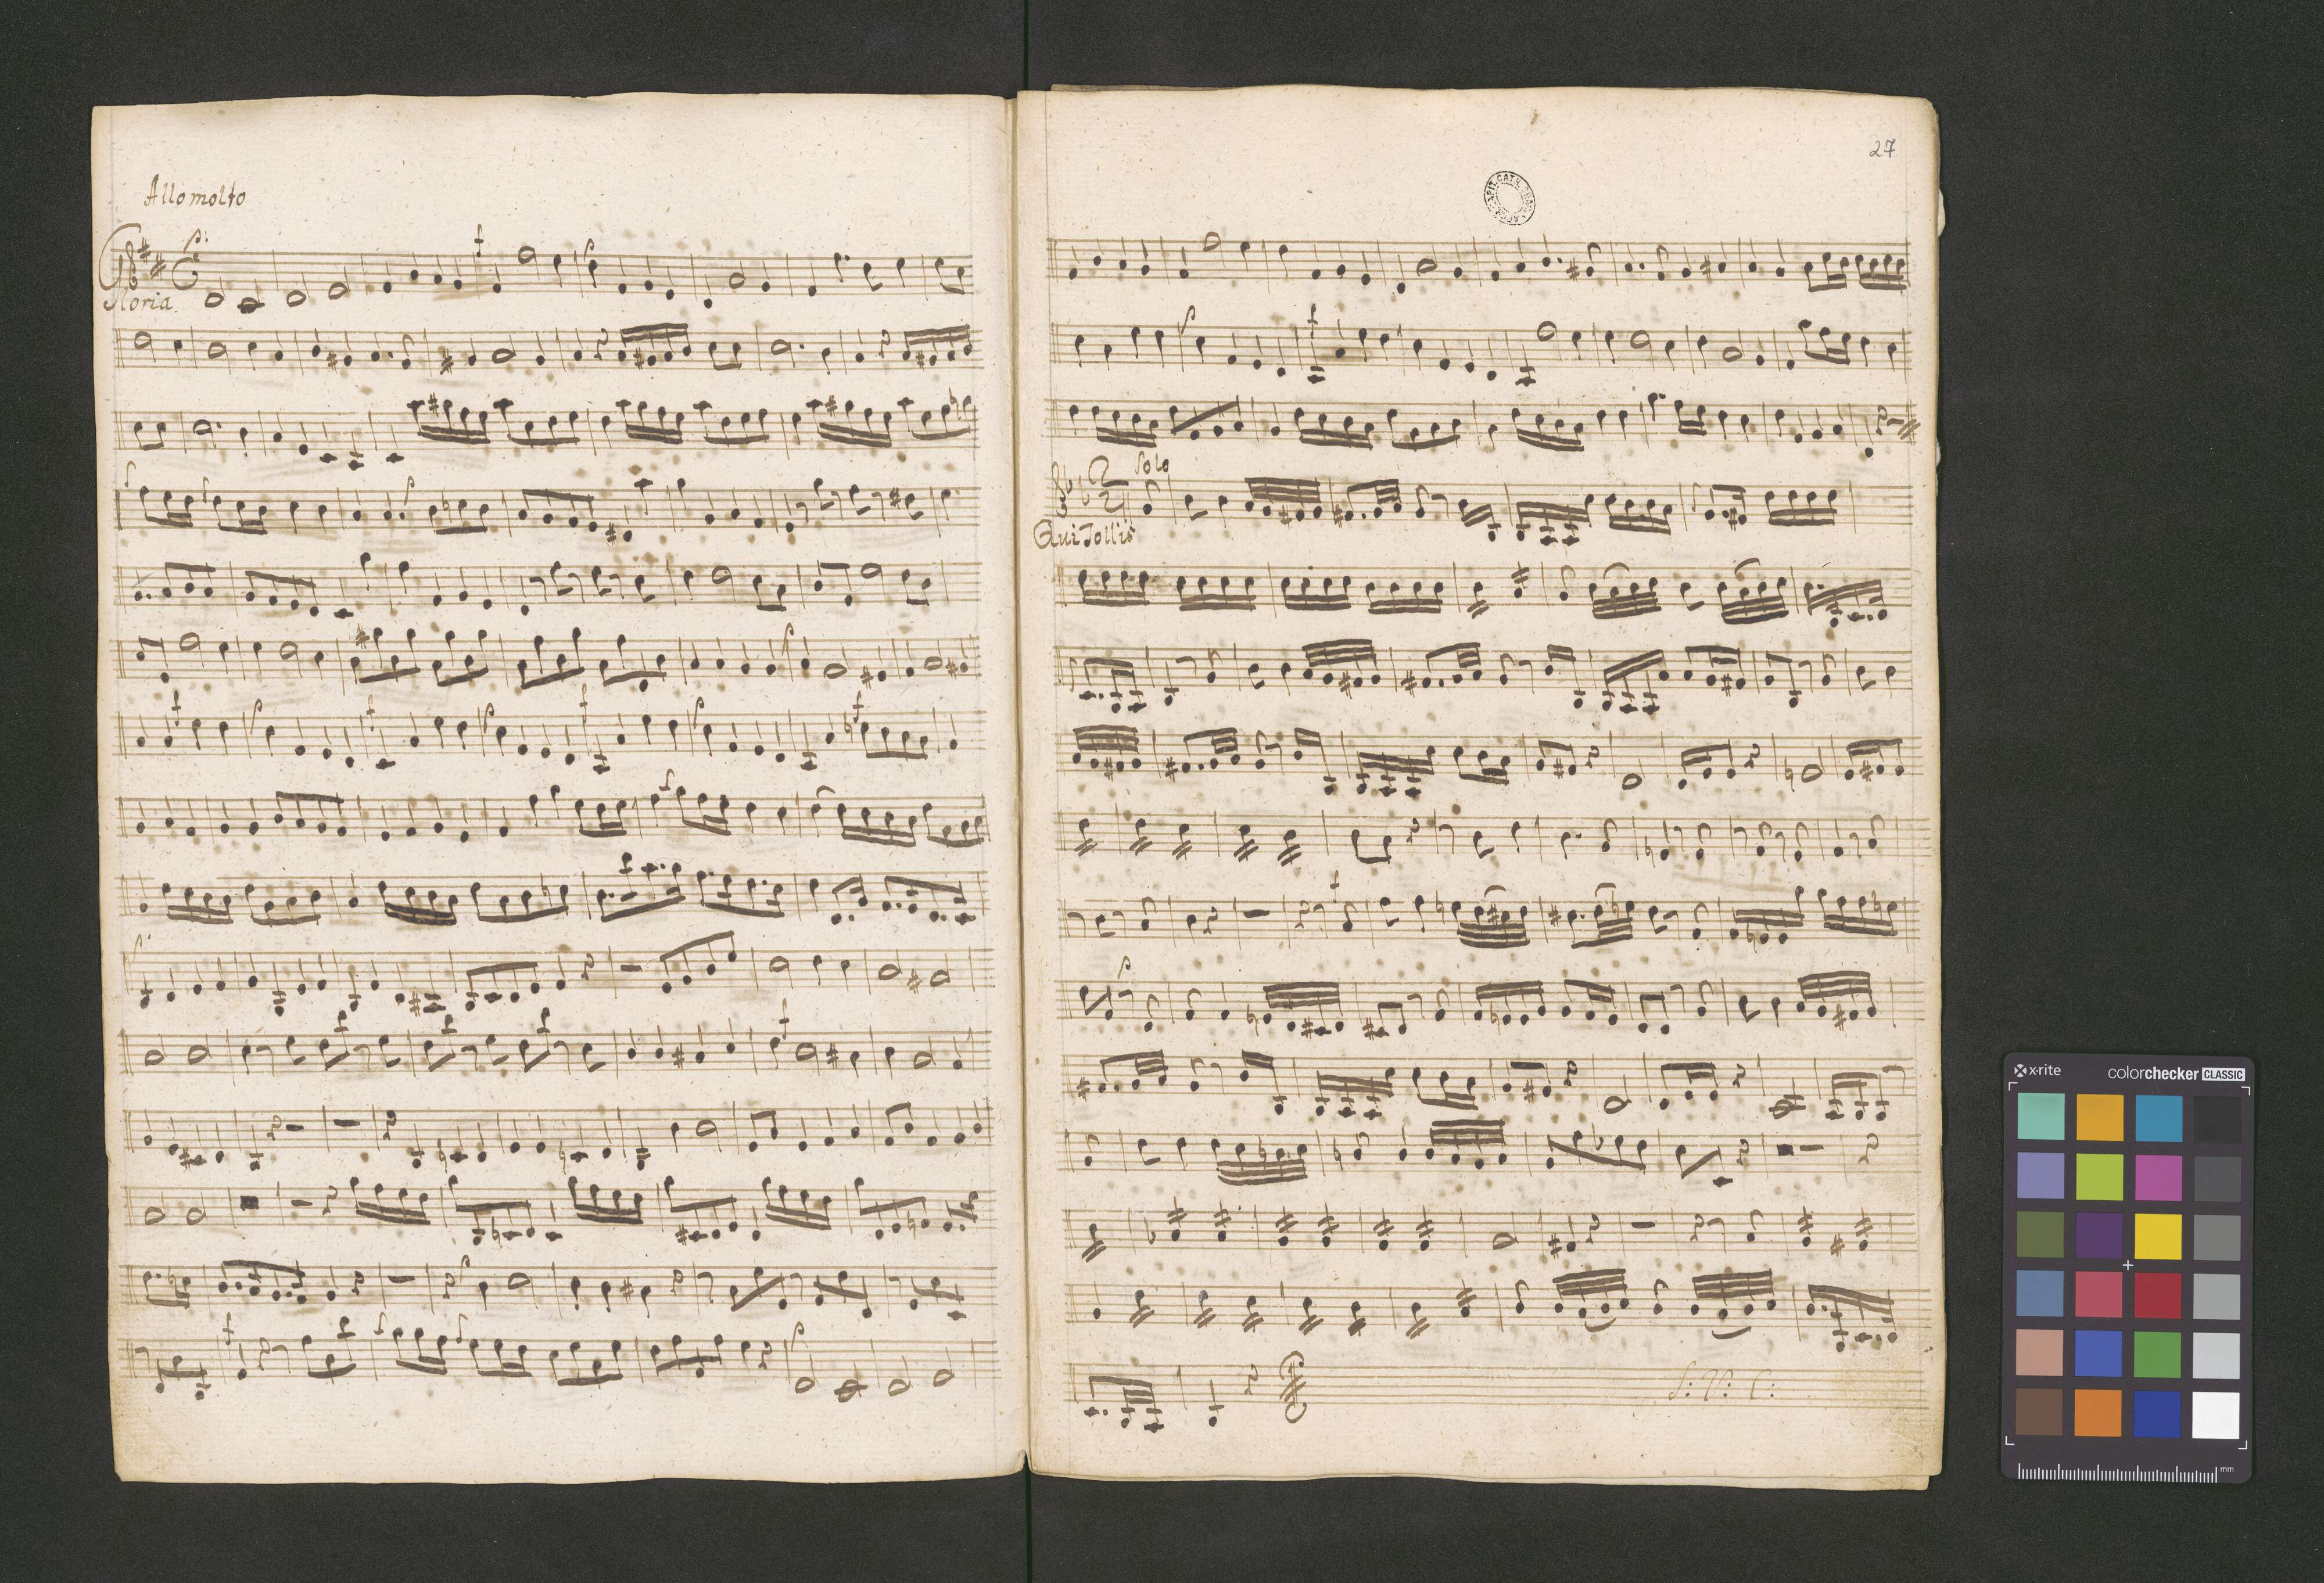 Allo molto
Gloria
27
Solo
Qui Tollis
S: V: C:
x-rite
colorchecker CLASSIC
mm